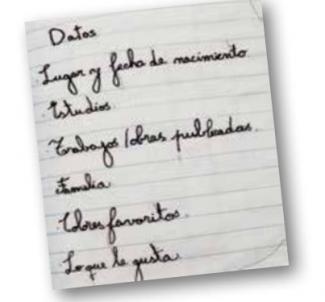 Datos
Lugar y fecha de nacimiento
Estudios
Trabajos/obras publicadas.
Familia
Colores favoritos
Lo que le gusta